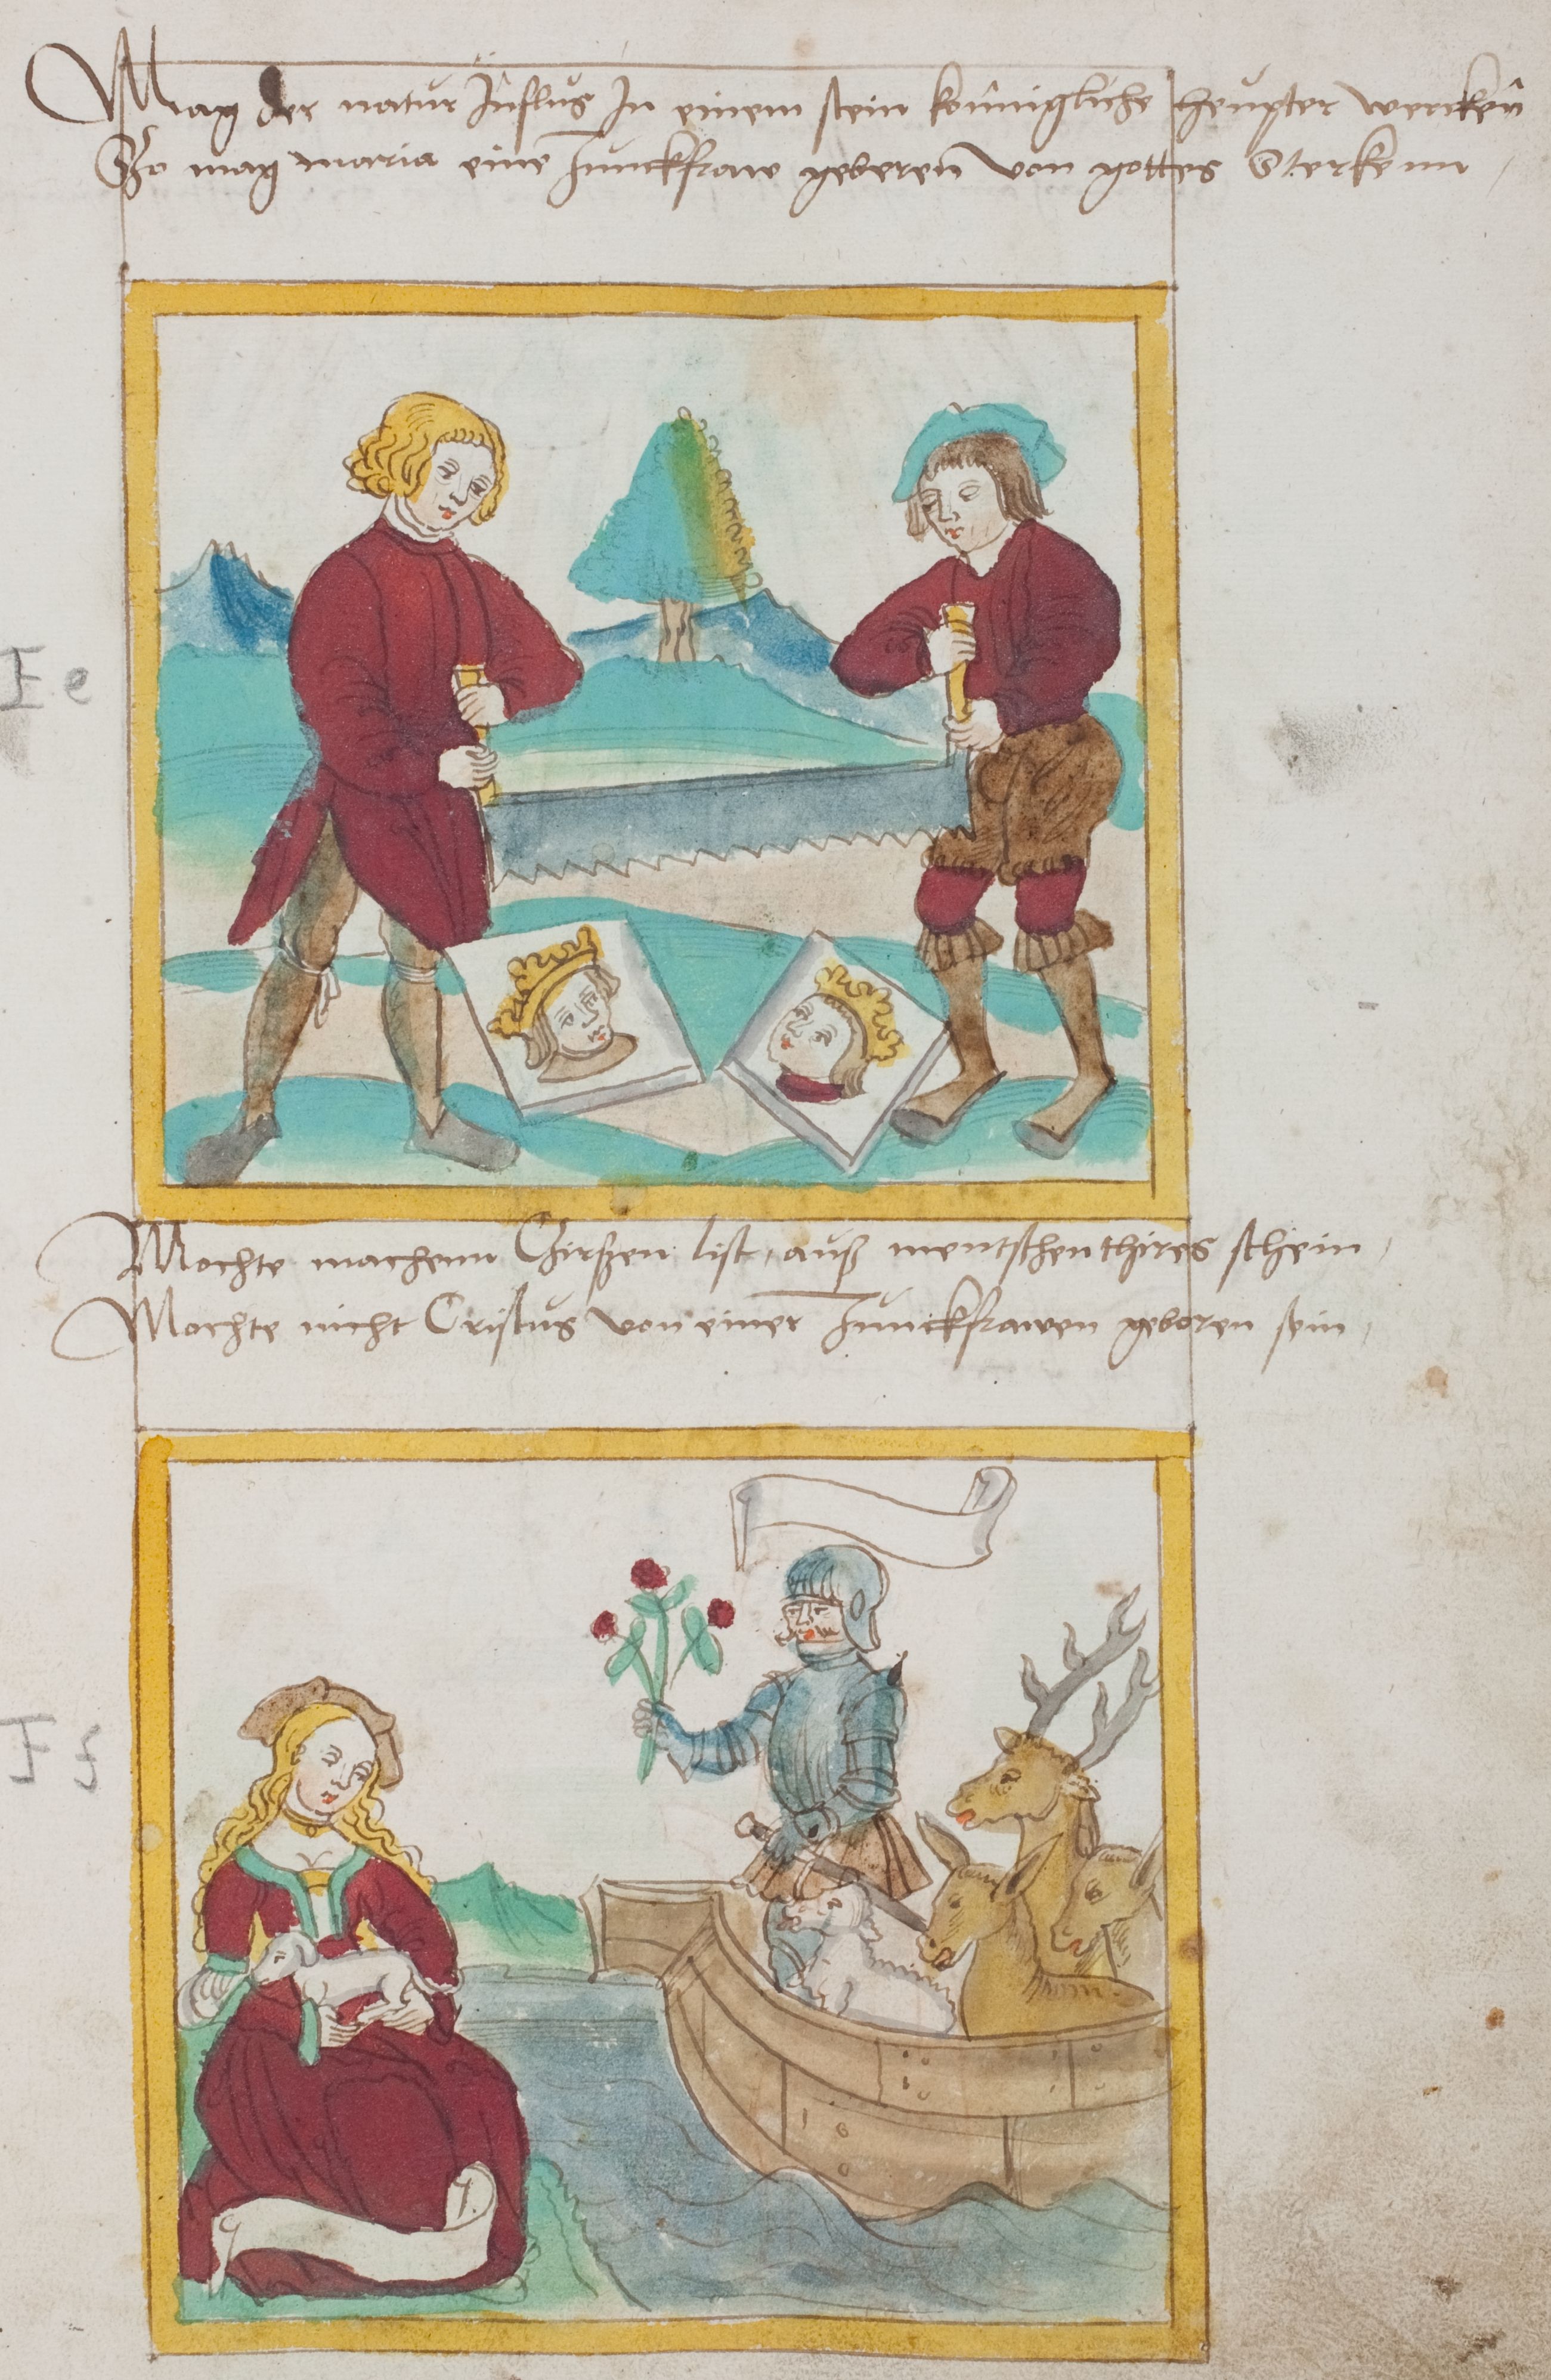 Mag der natur Influs In einem stein konnigliche heupter wercken
So mag maria eine Junckfraw geberen von gottes Sterkenn
Fe
Mochte machenn Cirßen list, auß mentschen thires schein,
Mochte nicht Cristus von einer Junckfrawen geboren sein,
Ff